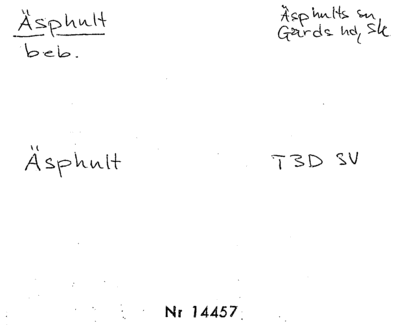 Äsphult
beb.
Äsphults sn,
Gärds hd, Sk
Äsphult
T3D SV
Nr 14457